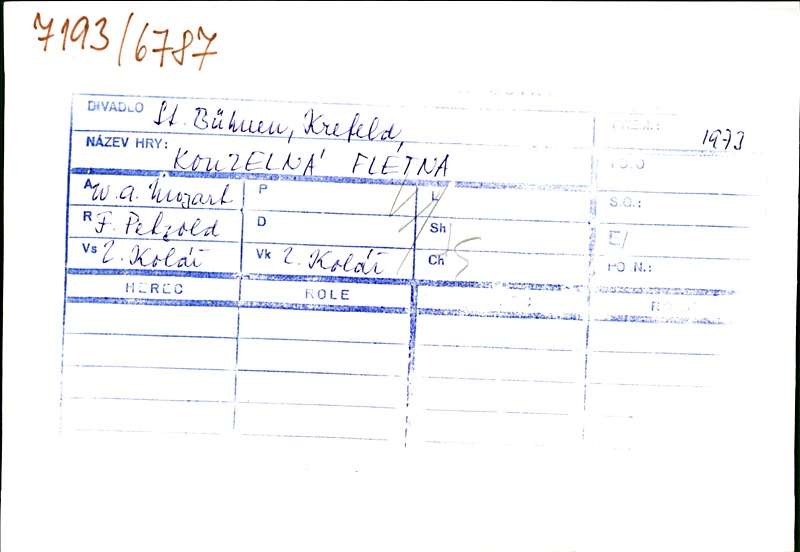 7193/6787
DIVADLO St. Bühnen, Krefeld,
PREM.: 1973
NÁZEV HRY: KOUZELNÁ FLÉTNA
FOTO
A W. A. Mozart P L S.G.:
R F. Petzold D Sh E/
Vs Z. Kolář Vk Z. Kolář Ch PO.N.:
HEREC ROLE